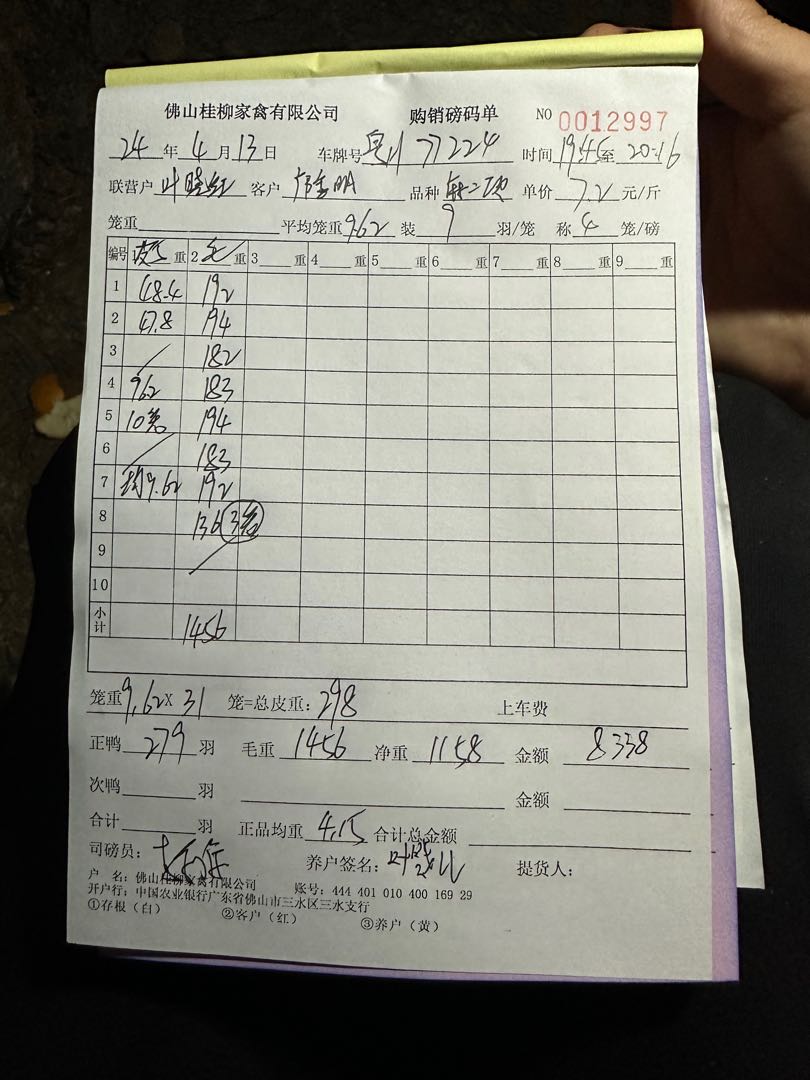 佛山桂柳家禽有限公司 购销磅码单 NO 0012997
24 年 4 月 13 日 车牌号 77224 时间 19:45 至 20:16
联营户 叶晓红 客户 品种 单价 7.2 元/斤
笼重 平均笼重 9.62 装 9 羽/笼 称 4 笼/磅
编号 1 皮 重 2 毛 重 3 重 4 重 5 重 6 重 7 重 8 重 9 重
1 48.4 192
2 47.8 194
3 182
4 962 183
5 10笼 194
6 183
7 均9.62 192
8 136 3笼
9
10
小计 1456
笼重 9.62 X 31 笼=总皮重: 298 上车费
正鸭 279 羽 毛重 1456 净重 1158 金额 8338
次鸭 羽 金额
合计 羽 正品均重 4.15 合计总金额
司磅员: 养户签名: 提货人:
户 名: 佛山桂柳家禽有限公司 账号: 444 401 010 400 169 29
开户行: 中国农业银行广东省佛山市三水区三水支行
①存根（白） ②客户（红） ③养户（黄）